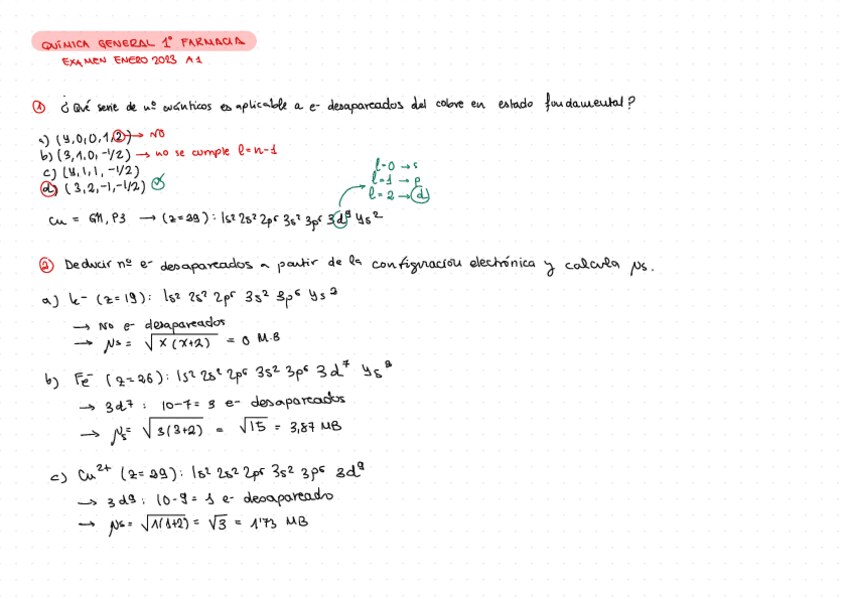 QUÍMICA GENERAL 1º FARMACIA
EXAMEN ENERO 2023 A1
① ¿Qué serie de nº cuánticos es aplicable a e- desapareados del cobre en estado fundamental?
a) (4,0,0,1,2) → NO
b) (3,1,0,-1/2) → no se cumple l=n-1
c) (4,1,1,-1/2)
d) (3,2,-1,-1/2)
l=0 → s
l=1 → p
l=2 → d
Cu = G11, P3 → (z=29): 1s² 2s² 2p⁶ 3s² 3p⁶ 3d⁹ 4s²
② Deducir nº e- desapareados a partir de la configuración electrónica y calcula μs.
a) k- (z=19): 1s² 2s² 2p⁶ 3s² 3p⁶ 4s²
→ No e- desapareados
→ μs = √x(x+2) = 0 M.B
b) Fe- (z=26): 1s² 2s² 2p⁶ 3s² 3p⁶ 3d⁷ 4s²
→ 3d⁷: 10-7= 3 e- desapareados
→ μs= √3(3+2) = √15 = 3,87 MB
c) Cu²⁺ (z=29): 1s² 2s² 2p⁶ 3s² 3p⁶ 3d⁹
→ 3d⁹: 10-9= 1 e- desapareado
→ μs= √1(1+2) = √3 = 1'73 MB